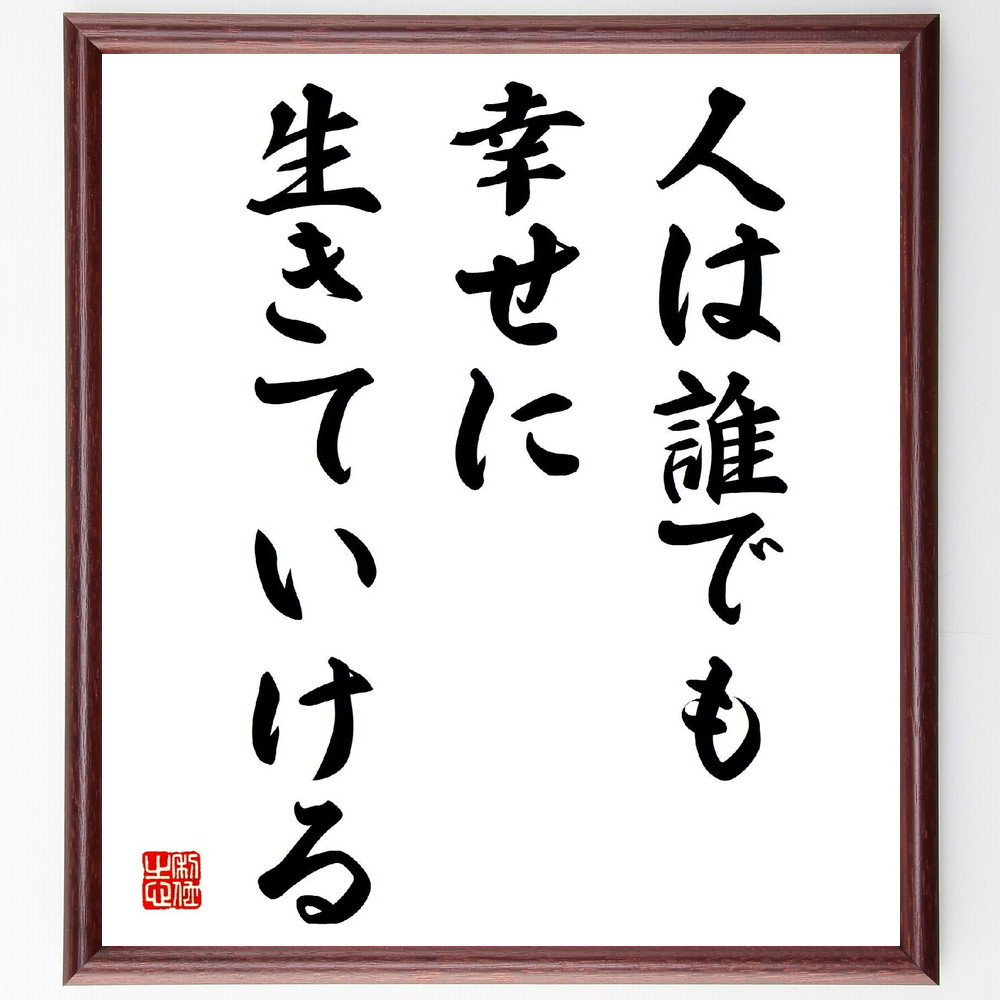 人は誰でも
幸せに
生きていける